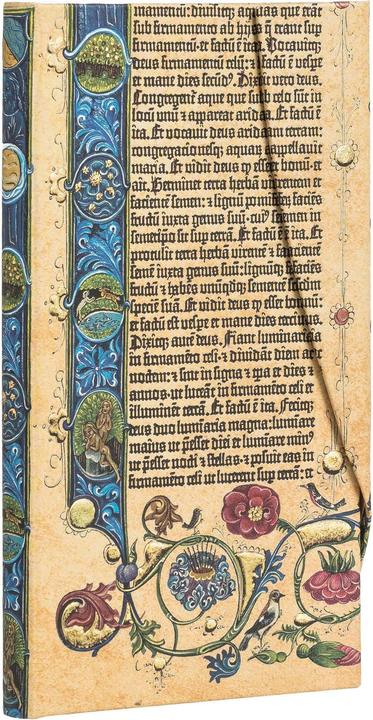 mamentū: divisitq; aquas que erāt
sub firmamento ab hijs q̄ erant sup
firmamentū: et factū ē ita. Vocavitq;
deus firmamentū celū: & factū ē vespe
et mane dies secūdꝰ. Dixit vero deus.
Congregent aque que sub celo sūt in
locū unū & appareat arida. Et factū ē
ita. Et vocavit deus aridam terram:
congregacōnesq; aquaꝝ appellavit
maria. Et vidit deus ꝙ esset bonū. et
ait. Germinet terra herbā virentem et
facientē semen: & lignū pomiferū faciēs
fructū iuxta genus suū. cuiꝰ semen in
semetipō sit sup terrā. Et factū ē ita. Et
protulit terra herbā virentē & facientē
semē iuxta genus suū: lignūq; faciēs
fructū & habēs unūqdq; semētē scdm
speciē suā. Et vidit deus ꝙ esset bonū:
et factū est vespe et mane dies tercius.
Dixitq; autē deus. Fiant luminaria
in firmamēto celi. & dividāt diem ac
noctem: & sint in signa & tpa et dies &
annos. ut luceāt in firmamēto celi et
illuminēt terrā. Et factū ē ita. Fecitq;
deus duo luminaria magna: luminare
maius ut pesset diei et luminare minꝰ
ut pesset nocti & stellas. & posuit eas in
firmamēto celi ut lucerent sup terrā: et